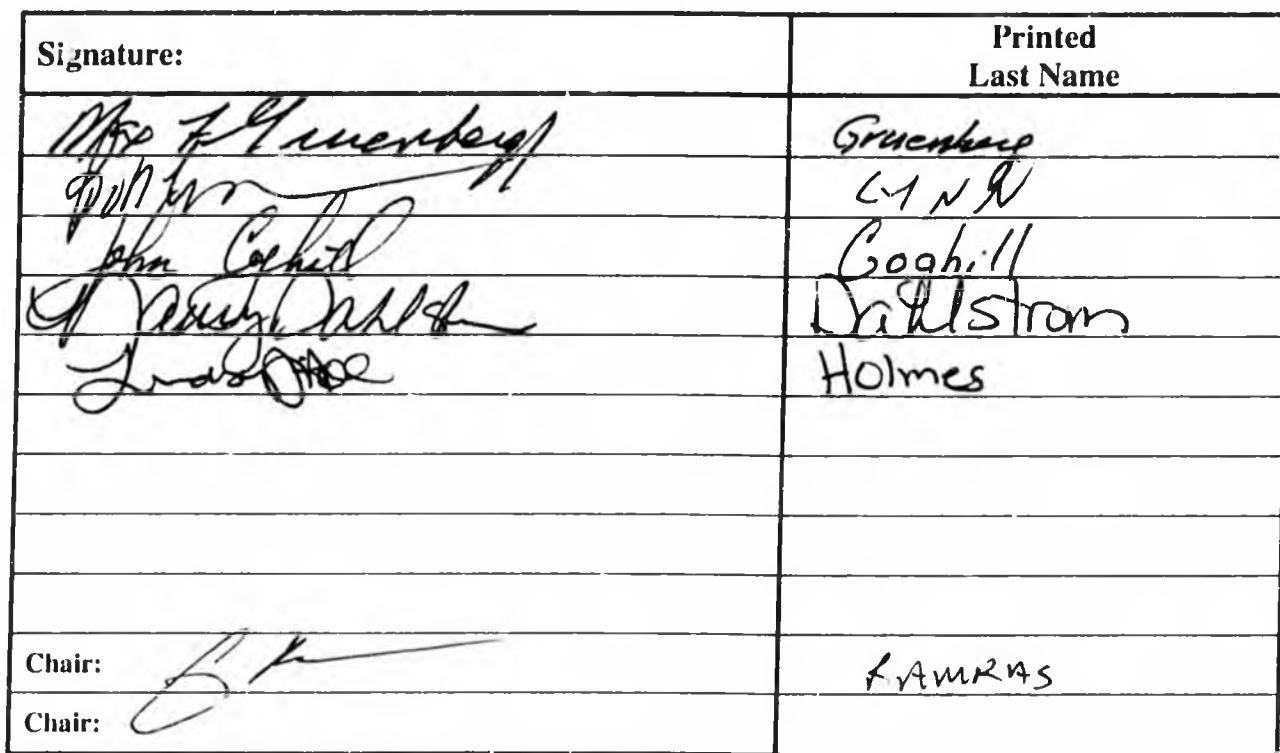 Signature: Printed Last Name
Max F Gruenberg Gruenberg
Lynn
John Coghill Coghill
Nancy Dahlstrom Dahlstrom
Holmes
Chair: RAMRAS
Chair: